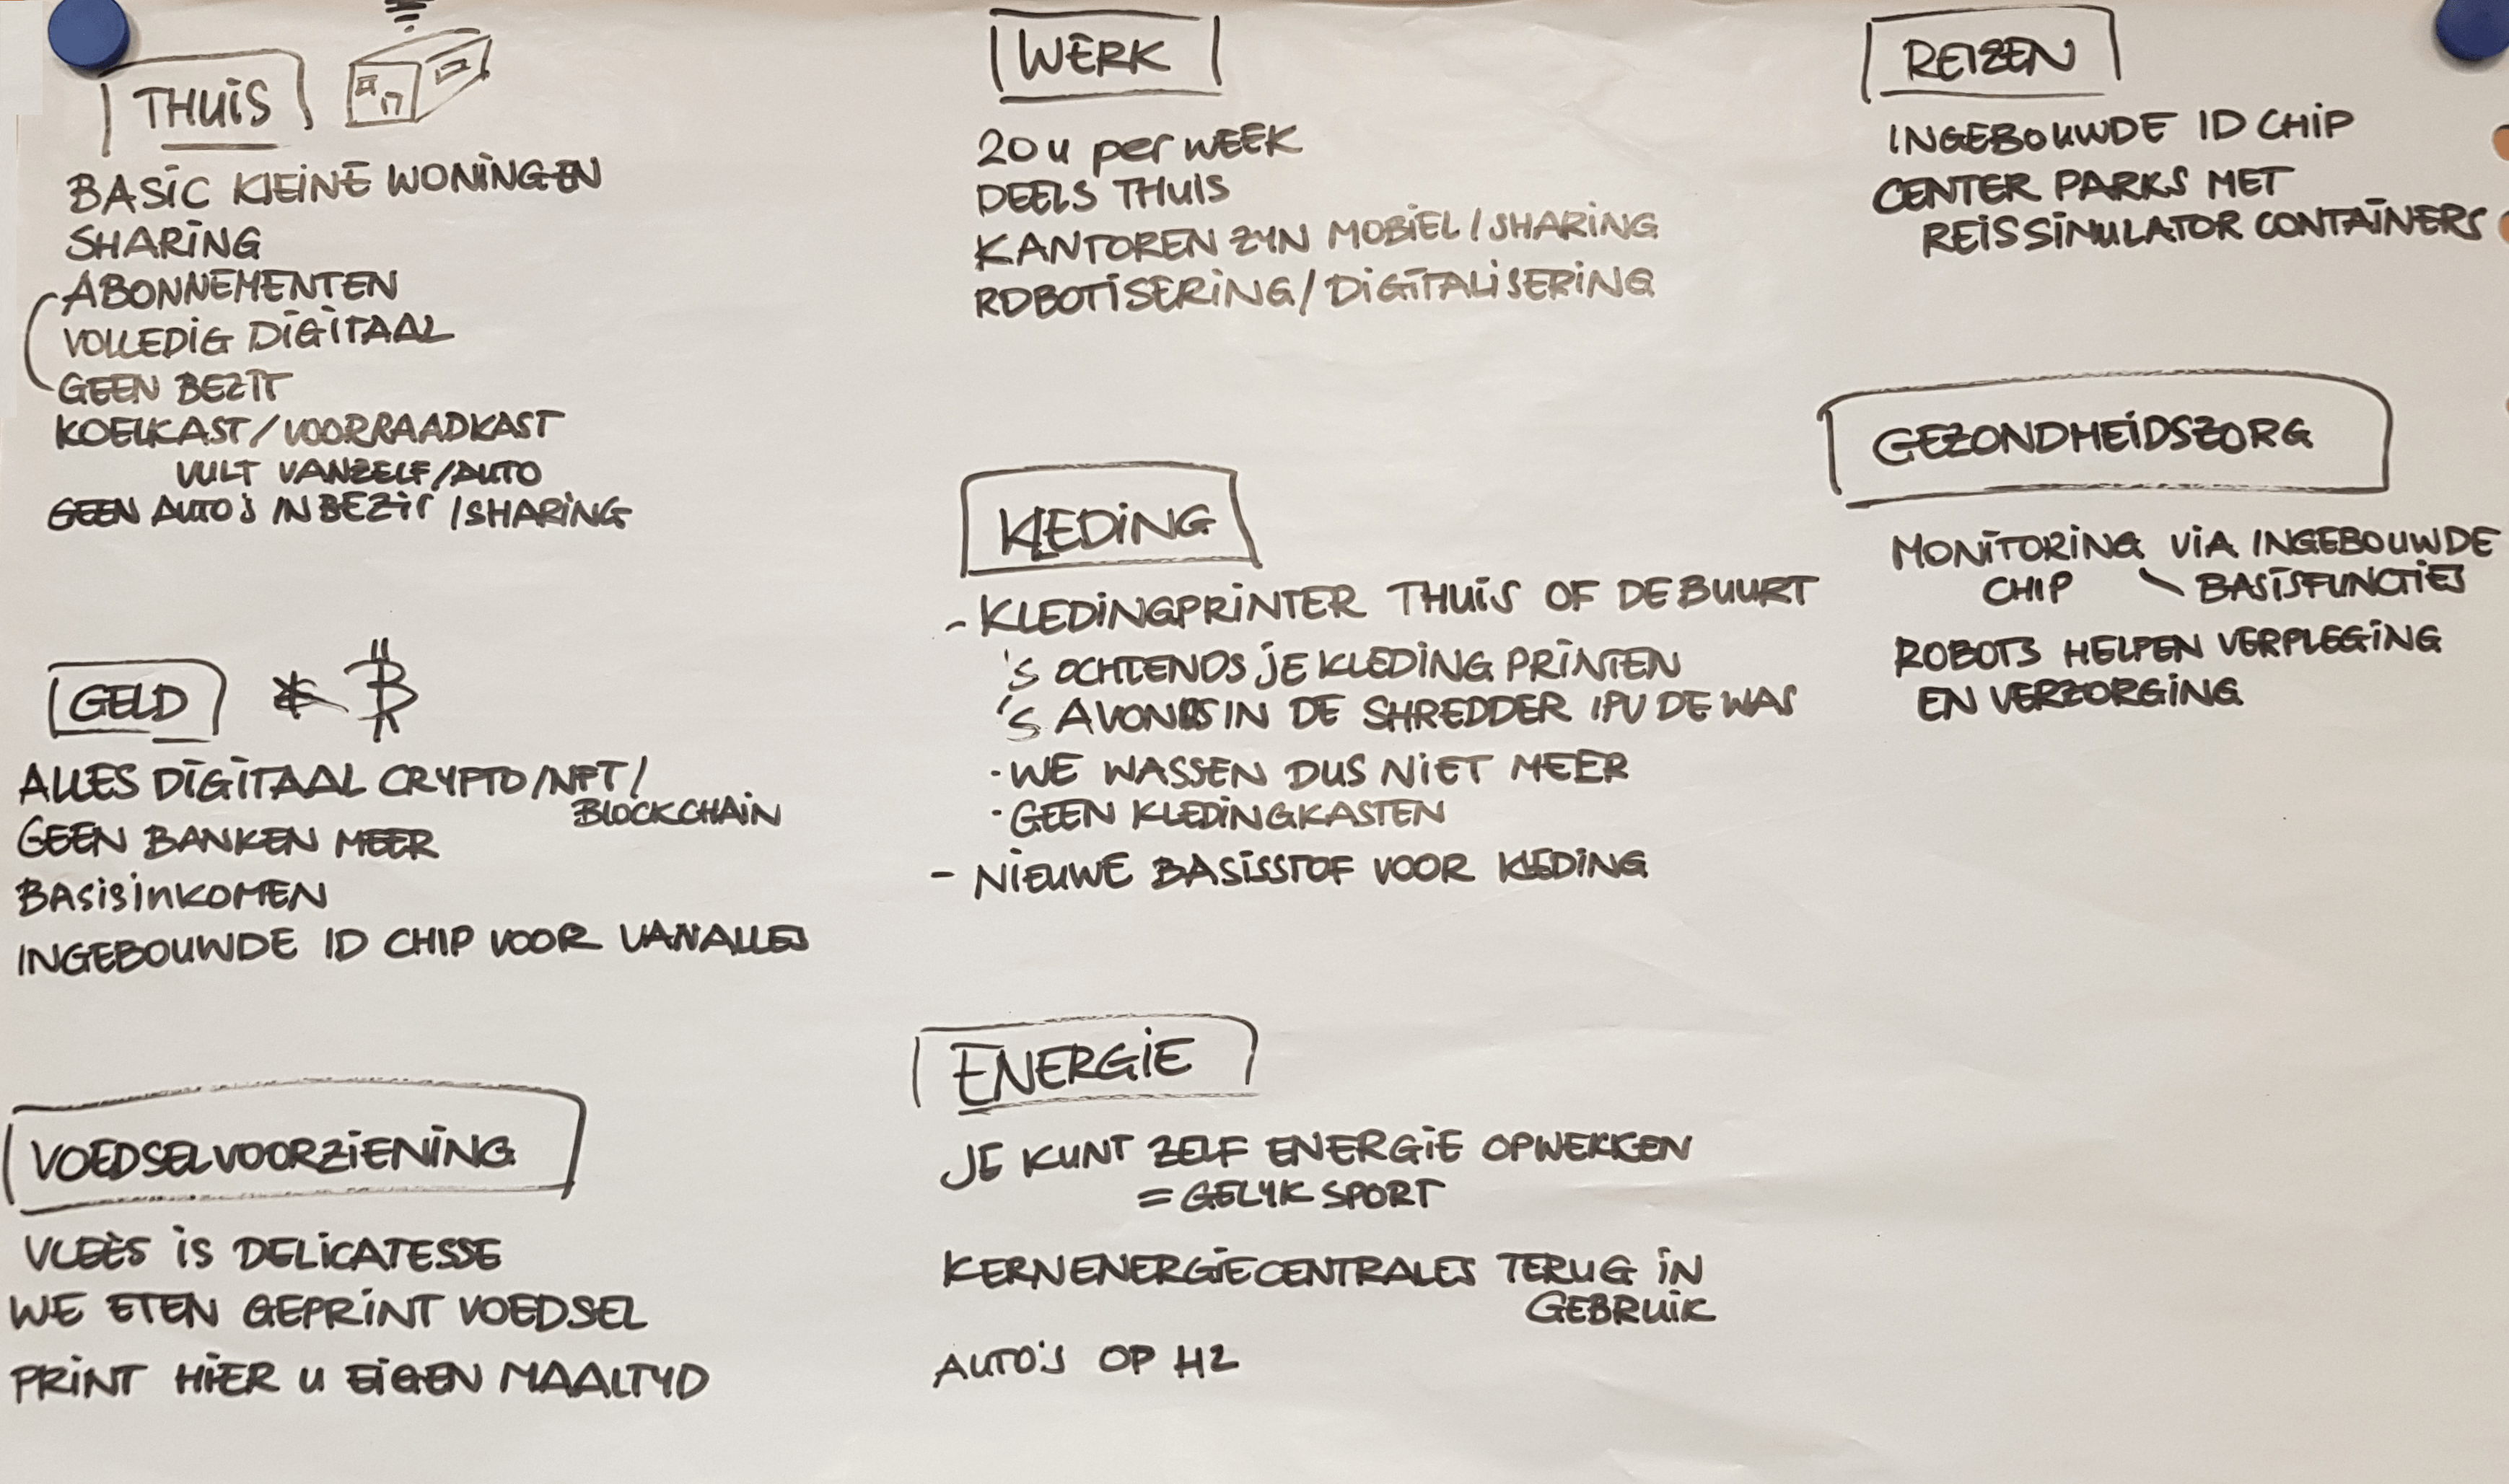 THUIS
BASIC KLEINE WONINGEN
SHARING
ABONNEMENTEN
VOLLEDIG DIGITAAL
GEEN BEZIT
KOELKAST/VOORRAADKAST
VULT VANZELF/AUTO
GEEN AUTO'S IN BEZIT / SHARING
GELD
ALLES DIGITAAL CRYPTO/NFT/
BLOCKCHAIN
GEEN BANKEN MEER
BASISINKOMEN
INGEBOUWDE ID CHIP VOOR VANALLES
VOEDSELVOORZIENING
VLEES IS DELICATESSE
WE ETEN GEPRINT VOEDSEL
PRINT HIER U EIGEN MAALTYD
WERK
20 u per WEEK
DEELS THUIS
KANTOREN ZYN MOBIEL / SHARING
ROBOTISERING / DIGITALISERING
KLEDING
- KLEDINGPRINTER THUIS OF DE BUURT
'S OCHTENDS JE KLEDING PRINTEN
'S AVONDS IN DE SHREDDER IPV DE WAS
· WE WASSEN DUS NIET MEER
· GEEN KLEDINGKASTEN
- NIEUWE BASISSTOF VOOR KLEDING
ENERGIE
JE KUNT ZELF ENERGIE OPWEKKEN
= GELYK SPORT
KERNENERGIECENTRALES TERUG IN
GEBRUIK
AUTO'S OP H2
REIZEN
INGEBOUWDE ID CHIP
CENTER PARKS MET
REISSIMULATOR CONTAINERS
GEZONDHEIDSZORG
MONITORING VIA INGEBOUWDE
CHIP \ BASISFUNCTIES
ROBOTS HELPEN VERPLEGING
EN VERZORGING